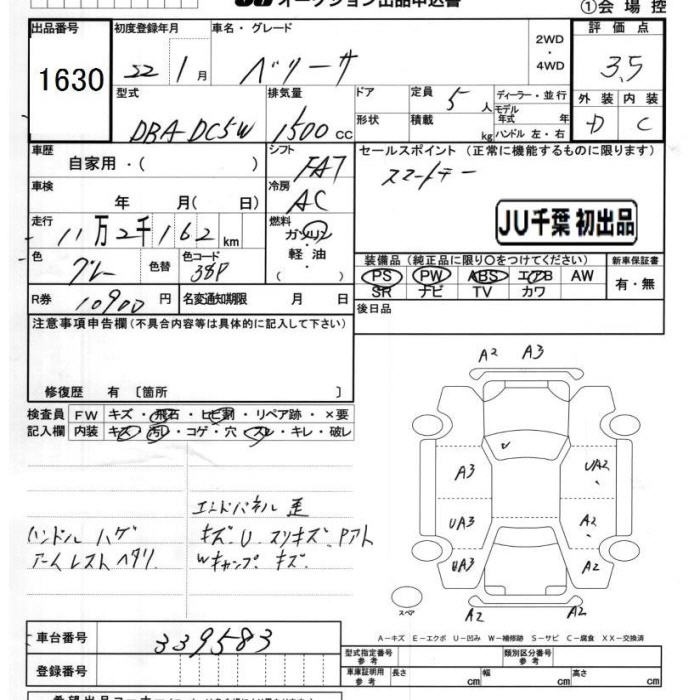 オークション出品申込書
①会場控
出品番号 初度登録年月 車名・グレード 評価点
1630 22 1月 ベリーサ 2WD・4WD 3.5
型式 排気量 ドア 定員 ディーラー・並行 外装 内装
DBA DC5W 1500 CC 5人 モデル年式 年 D C
形状 積載 kg ハンドル 左・右
車歴 シフト セールスポイント (正常に機能するものに限ります)
自家用・( ) FAT スマートキー
車検 冷房
年 月( 日) AC JU千葉 初出品
走行 燃料
11万2千162km ガソリン
軽・油
( )
色 色替 色コード 装備品 (純正品に限り○をつけてください) 新車保証書
グレー 38P PS PW ABS エアB AW 有・無
SR ナビ TV カワ
R券 10900円 名変通知期限 月 日 後日品
注意事項申告欄(不具合内容等は具体的に記入して下さい)
修復歴 有 〔箇所 〕
検査員 FW キズ・飛石・ヒビ割・リペア跡・×要
記入欄 内装 キズ・汚れ・コゲ・穴・スレ・キレ・破レ
A2 A3
A3 UA2
UA3 A2
UA3 A2
A2 A2
スペア
エンドパネル 歪
ハンドル ハゲ キズ.U スリキズ.Pアト
アームレスト ヘタリ Wキャンプ キズ.
A-キズ E-エクボ U-凹み W-補修跡 S-サビ C-腐食 XX-交換済
車台番号 339583
登録番号
型式指定番号 参考 類別区分番号 参考
車庫証明用 参考 長さ cm 幅 cm 高さ cm